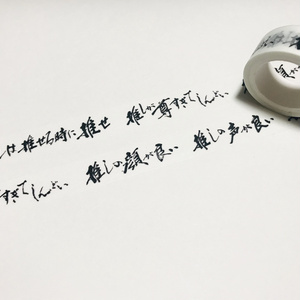 は推せる時に推せ 推しが尊すぎてしんどい
すぎてしんどい 推しの顔が良い 推しの声が良い